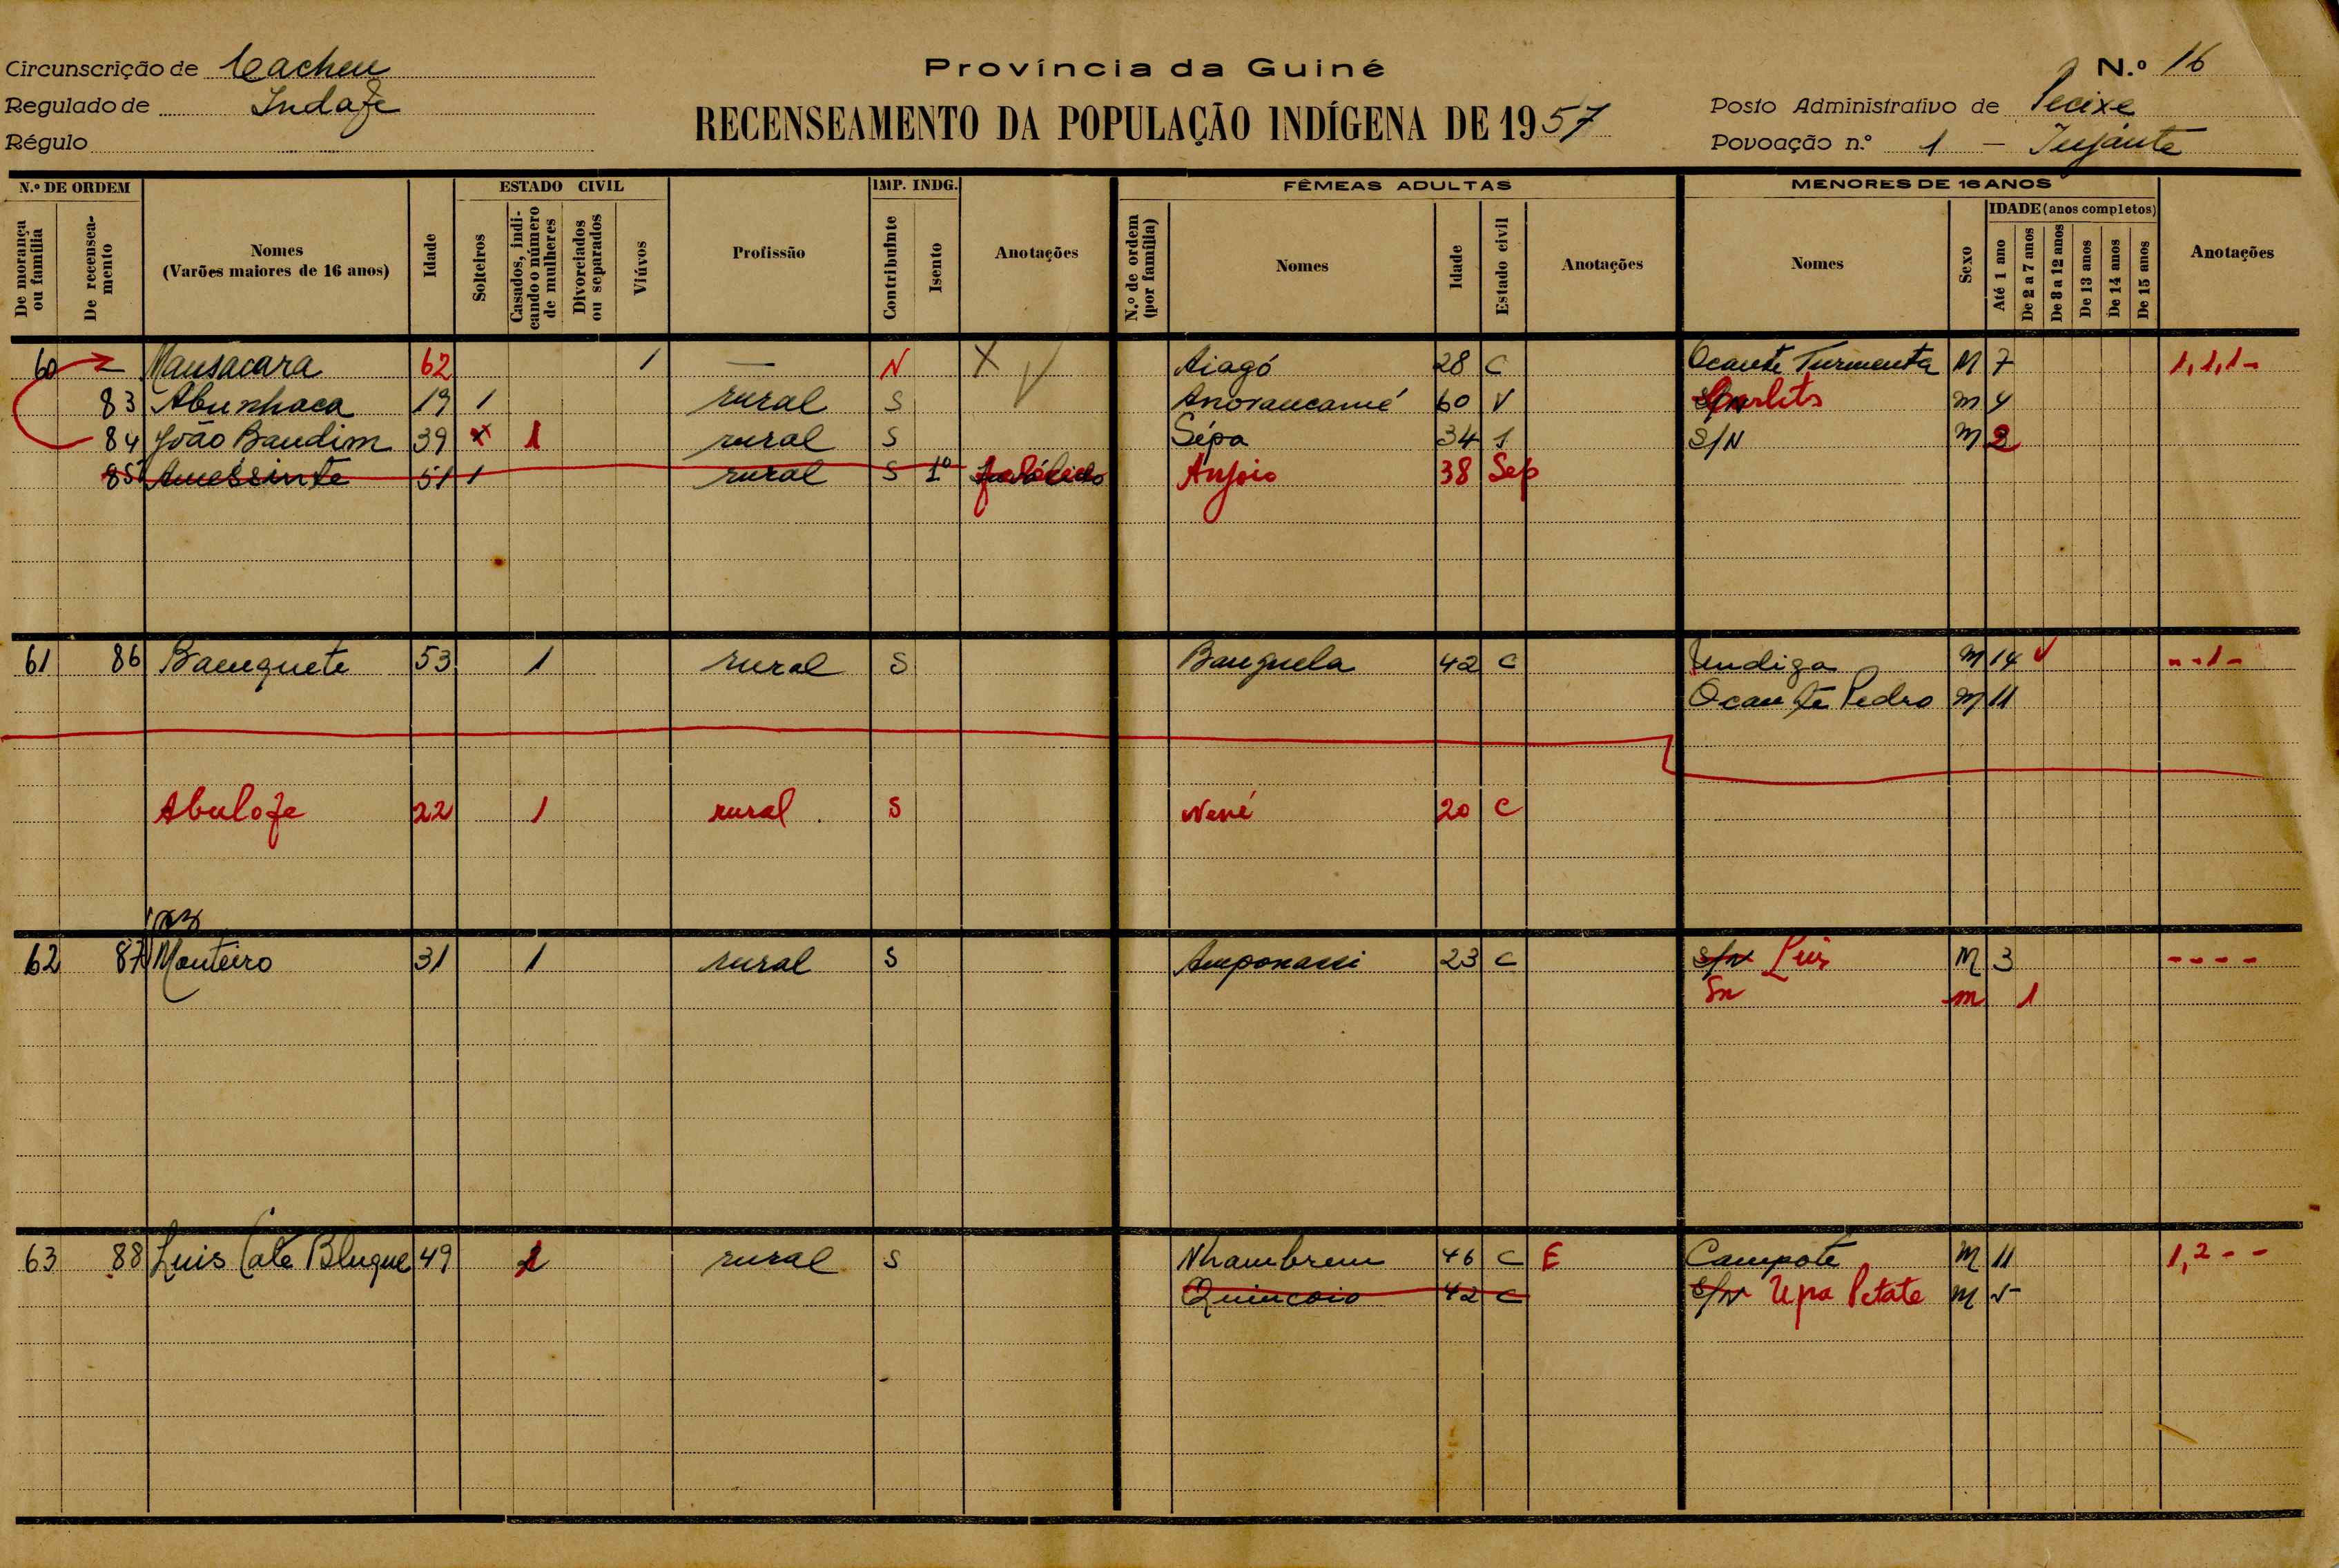 Circunscrição de Cacheu
Regulado de Indafe
Régulo
Província da Guiné
RECENSEAMENTO DA POPULAÇÃO INDÍGENA DE 1957
N.º 16
Posto Administrativo de Pecixe
Povoação n.º 1 - Injante
N.º DE ORDEM
De morança ou família
De recensea-mento
Nomes
(Varões maiores de 16 anos)
Idade
ESTADO CIVIL
Solteiros
Casados, indi-cando o número de mulheres
Divorciados ou separados
Viúvos
Profissão
IMP. INDG.
Contribuinte
Isento
Anotações
FÊMEAS ADULTAS
N.º de ordem (por família)
Nomes
Idade
Estado civil
Anotações
MENORES DE 16 ANOS
Nomes
Sexo
IDADE (anos completos)
Até 1 ano
De 2 a 7 anos
De 8 a 12 anos
De 13 anos
De 14 anos
De 15 anos
Anotações
60 – Mansacara 62 1 — N X Aiagó 28 C Ocante Turmenta M 7 1,1,1-
83 Abunhaca 19 1 rural S Anorancamé 60 V Carlits m 4
84 João Bandim 39 x 1 rural S Sépa 34 S/N M 2
85 Amessinte 51 1 rural S 1º falécido Anjoio 38 Sep
61 86 Banquete 53 1 rural S Banguela 42 C Undiga M 14 - - 1 -
Ocante Pedro M 11
Abulofe 22 1 rural S Nené 20 C
62 87 Monteiro 31 1 rural S Amponassi 23 C S/N Luis M 3 - - - -
Sn m 1
63 88 Luis Cate Bluque 49 1 rural S Nhambrem 46 C E Campote M 11 1,2 - -
Quincoio 42 C S/N Upa Petate M 5